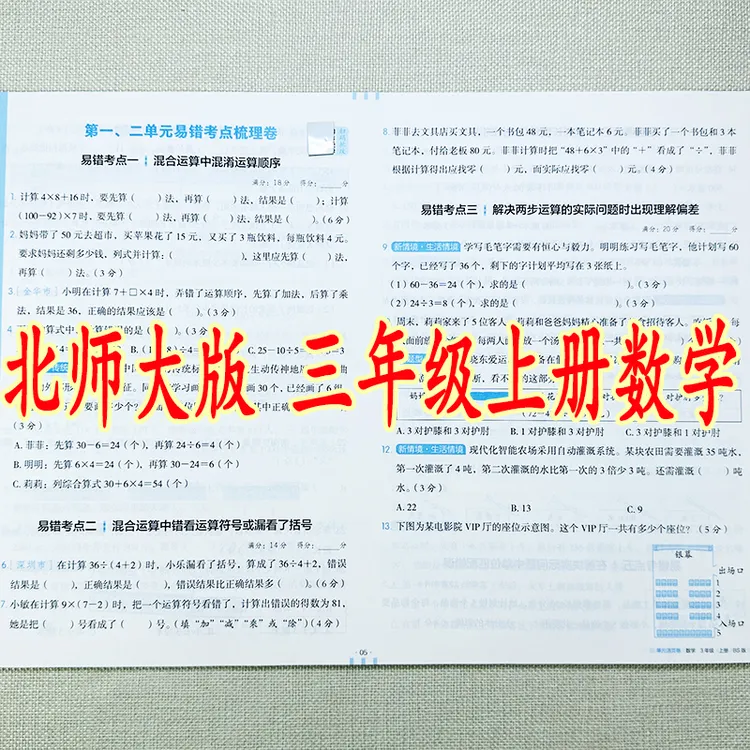 第一、二单元易错考点梳理卷
易错考点一 混合运算中混淆运算顺序
满分：16分 得分：____分
1. 计算4×8+16时，要先算（ ）法，再算（ ）法，结果是（ ）；计算
(100-92)×7时，要先算（ ）法，再算（ ）法，结果是（ ）。(6分)
2. 妈妈带了50元去超市，买苹果花了15元，又买了3瓶饮料，每瓶饮料4元。
要求妈妈还剩多少钱，列式并计算：（ ），这里应先算（ ）法，
再算（ ）法。(3分)
3. [金华市] 小明在计算7+□×4时，弄错了运算顺序，先算了加法，后算了乘
法，结果是36，正确的结果应该是（ ）。(3分)
北师大版 三年级上册数学
A. 菲菲：先算30-6=24（个），再算24÷6=4（个）
B. 明明：先算6×4=24（个），再算30-24=6（个）
C. 莉莉：列综合算式30+6×4=54（个）
易错考点二 混合运算中错看运算符号或漏看了括号
满分：14分 得分：____分
6. [深圳市] 在计算36÷(4+2)时，小乐漏看了括号，算成了36÷4+2，错误
结果是（ ），正确结果是（ ），错误结果比正确结果多（ ）。(6分)
7. 小敏在计算9×(7-2)时，把一个运算符号看错了，计算出错误的得数为81，
她是把（ ）号看成了（ ）号。(填“加”“减”“乘”或“除”)(4分)
8. 菲菲去文具店买文具，一个书包48元，一本笔记本6元。菲菲买了一个书包和3本
笔记本，付给老板80元。菲菲计算时把“48+6×3”中的“+”看成了“÷”，菲菲
根据计算得出应找零（ ）元，而实际应找零（ ）元。(4分)
易错考点三 解决两步运算的实际问题时出现理解偏差
满分：20分 得分：____分
9. 新情境·生活情境 学写毛笔字需要有恒心与毅力。明明练习写毛笔字，他计划写60
个字，已经写了36个，剩下的字计划平均写在3张纸上。
(1) 60-36=24（个），求的是（ ）。(3分)
(2) 24÷3=8（个），求的是（ ）。(3分)
A. 3对护膝和3对护肘 B. 1对护膝和3对护肘 C. 3对护膝和1对护肘
12. 新情境·生活情境 现代化智能农场采用自动灌溉系统。某块农田需要灌溉35吨水，
第一次灌溉了4吨，第二次灌溉的水比第一次的3倍少3吨。还需灌溉（ ）吨
水。(3分)
A. 22 B. 13 C. 9
13. 下图为某电影院VIP厅的座位示意图。这个VIP厅一共有多少个座位？(5分)
银幕
出场口
1
2
3
4
入场口
5
· 05 ·
数学 3年级 上册 BS版